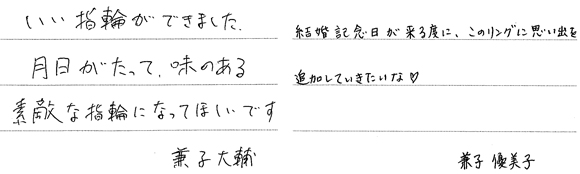 いい指輪ができました.
月日がたって、味のある
素敵な指輪になってほしいです
兼子大輔
結婚記念日が来る度に、このリングに思い出を
追加していきたいな♡
兼子 優美子